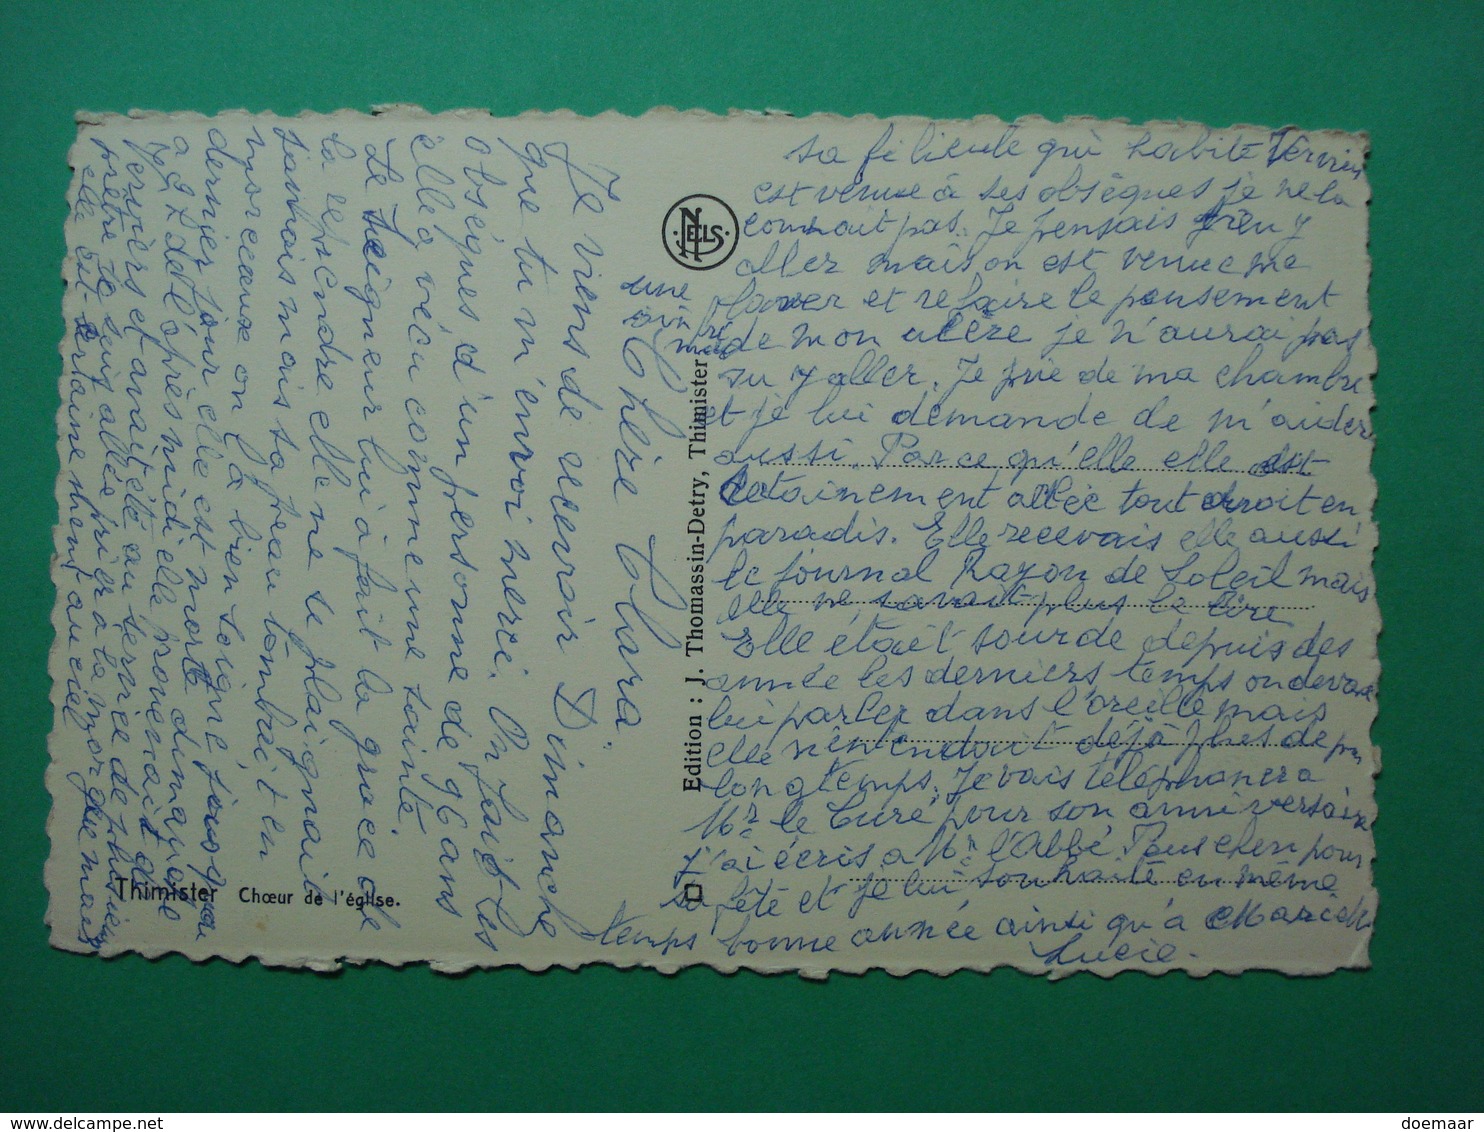 Chère Clara.
Je viens de recevoir Dimanche
que tu m'envoi merci. On fait les
obsèques d'un personne de 96 ans
elle a vécu comme une sainte.
Le Seigneur lui a fait la grâce de
la reprendre elle ne se plaignait
jamhais mais sa peau tombait en
morceaux on l'a bien soigné jusqu'au
dernier jour elle est morte dimanche
à 2 h de l'après midi elle provenait de
Verviers et avait été au service de plusieurs
prêtre je suis allée prier à la morgue mais
elle est certainement au ciel
une
sa filieule qui habite Verviers
est venue à ses obsèques je ne la
connait pas. Je pensais bien y
aller mais on est venue me
laver et refaire le pansement
de mon ulcère je n'aurai pas
su y aller. Je prie de ma chambre
et je lui demande de m'aider
aussi. Parce qu'elle elle est
certainement allée tout droit en
paradis. Elle recevais elle aussi
le journal Rayon de Soleil mais
elle ne savait plus le lire
elle était sourde depuis des
année les derniers temps on devait
lui parler dans l'oreille mais
elle n'entendait déjà plus depuis
longtemps. Je vais téléphoner à
Mr le Curé pour son anniversaire
j'ai écris a Mr l'Abbé pour
sa fête et je lui souhaité en même
temps bonne année ainsi qu'à
Lucie.
NELS
Edition : J. Thomassin-Detry, Thimister
Thimister Chœur de l'église.
doemaar